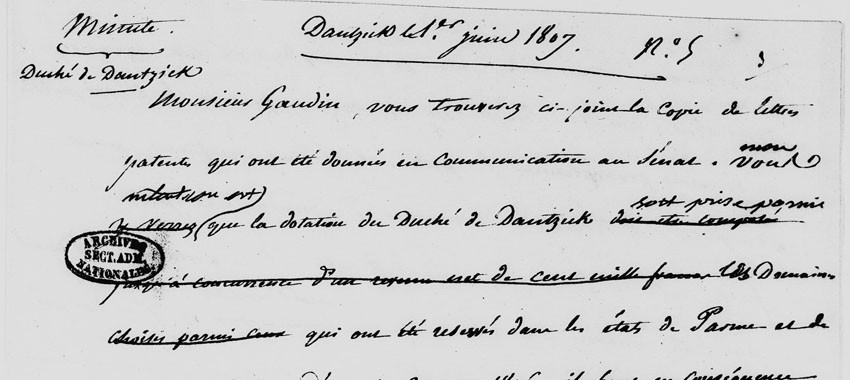 Minute.
Dantzick le 1.er juin 1807.
N.o 5
3
Duché de Dantzick
Monsieur Gaudin, vous trouverez ci-joint la Copie de lettres
patentes qui ont été données en Communication au Sénat. vous
mon
intention est
y verrez que la dotation du Duché de Dantzick doit être composé
soit prise parmi
ARCHIVES
SECT. ADM.
NATIONALES
jusqu'à concurrence d'un revenu net de cent mille francs les Domaines
choisis parmi ceux qui ont été reservés dans les états de Parme et de
il en conséquence